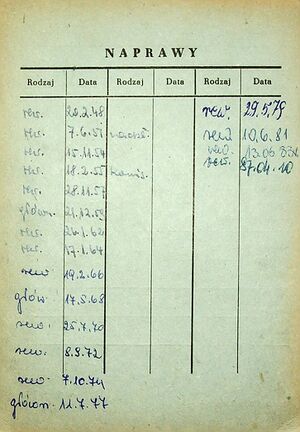 NAPRAWY
Rodzaj Data Rodzaj Data Rodzaj Data
rew. 20.2.48 rew. 29.5.79
rew. 7.6.51 rew 10.6.81
rew. 15.11.54 rew. 13.06.83
rew. 18.2.55 rew. 87.04.10
rew. 28.11.57
główn. 21.12.59
rew. 26.1.62
rew. 17.1.64
rew 19.2.66
głów. 17.5.68
rew. 25.7.70
rew. 8.9.72
rew 7.10.74
główn. 11.7.77